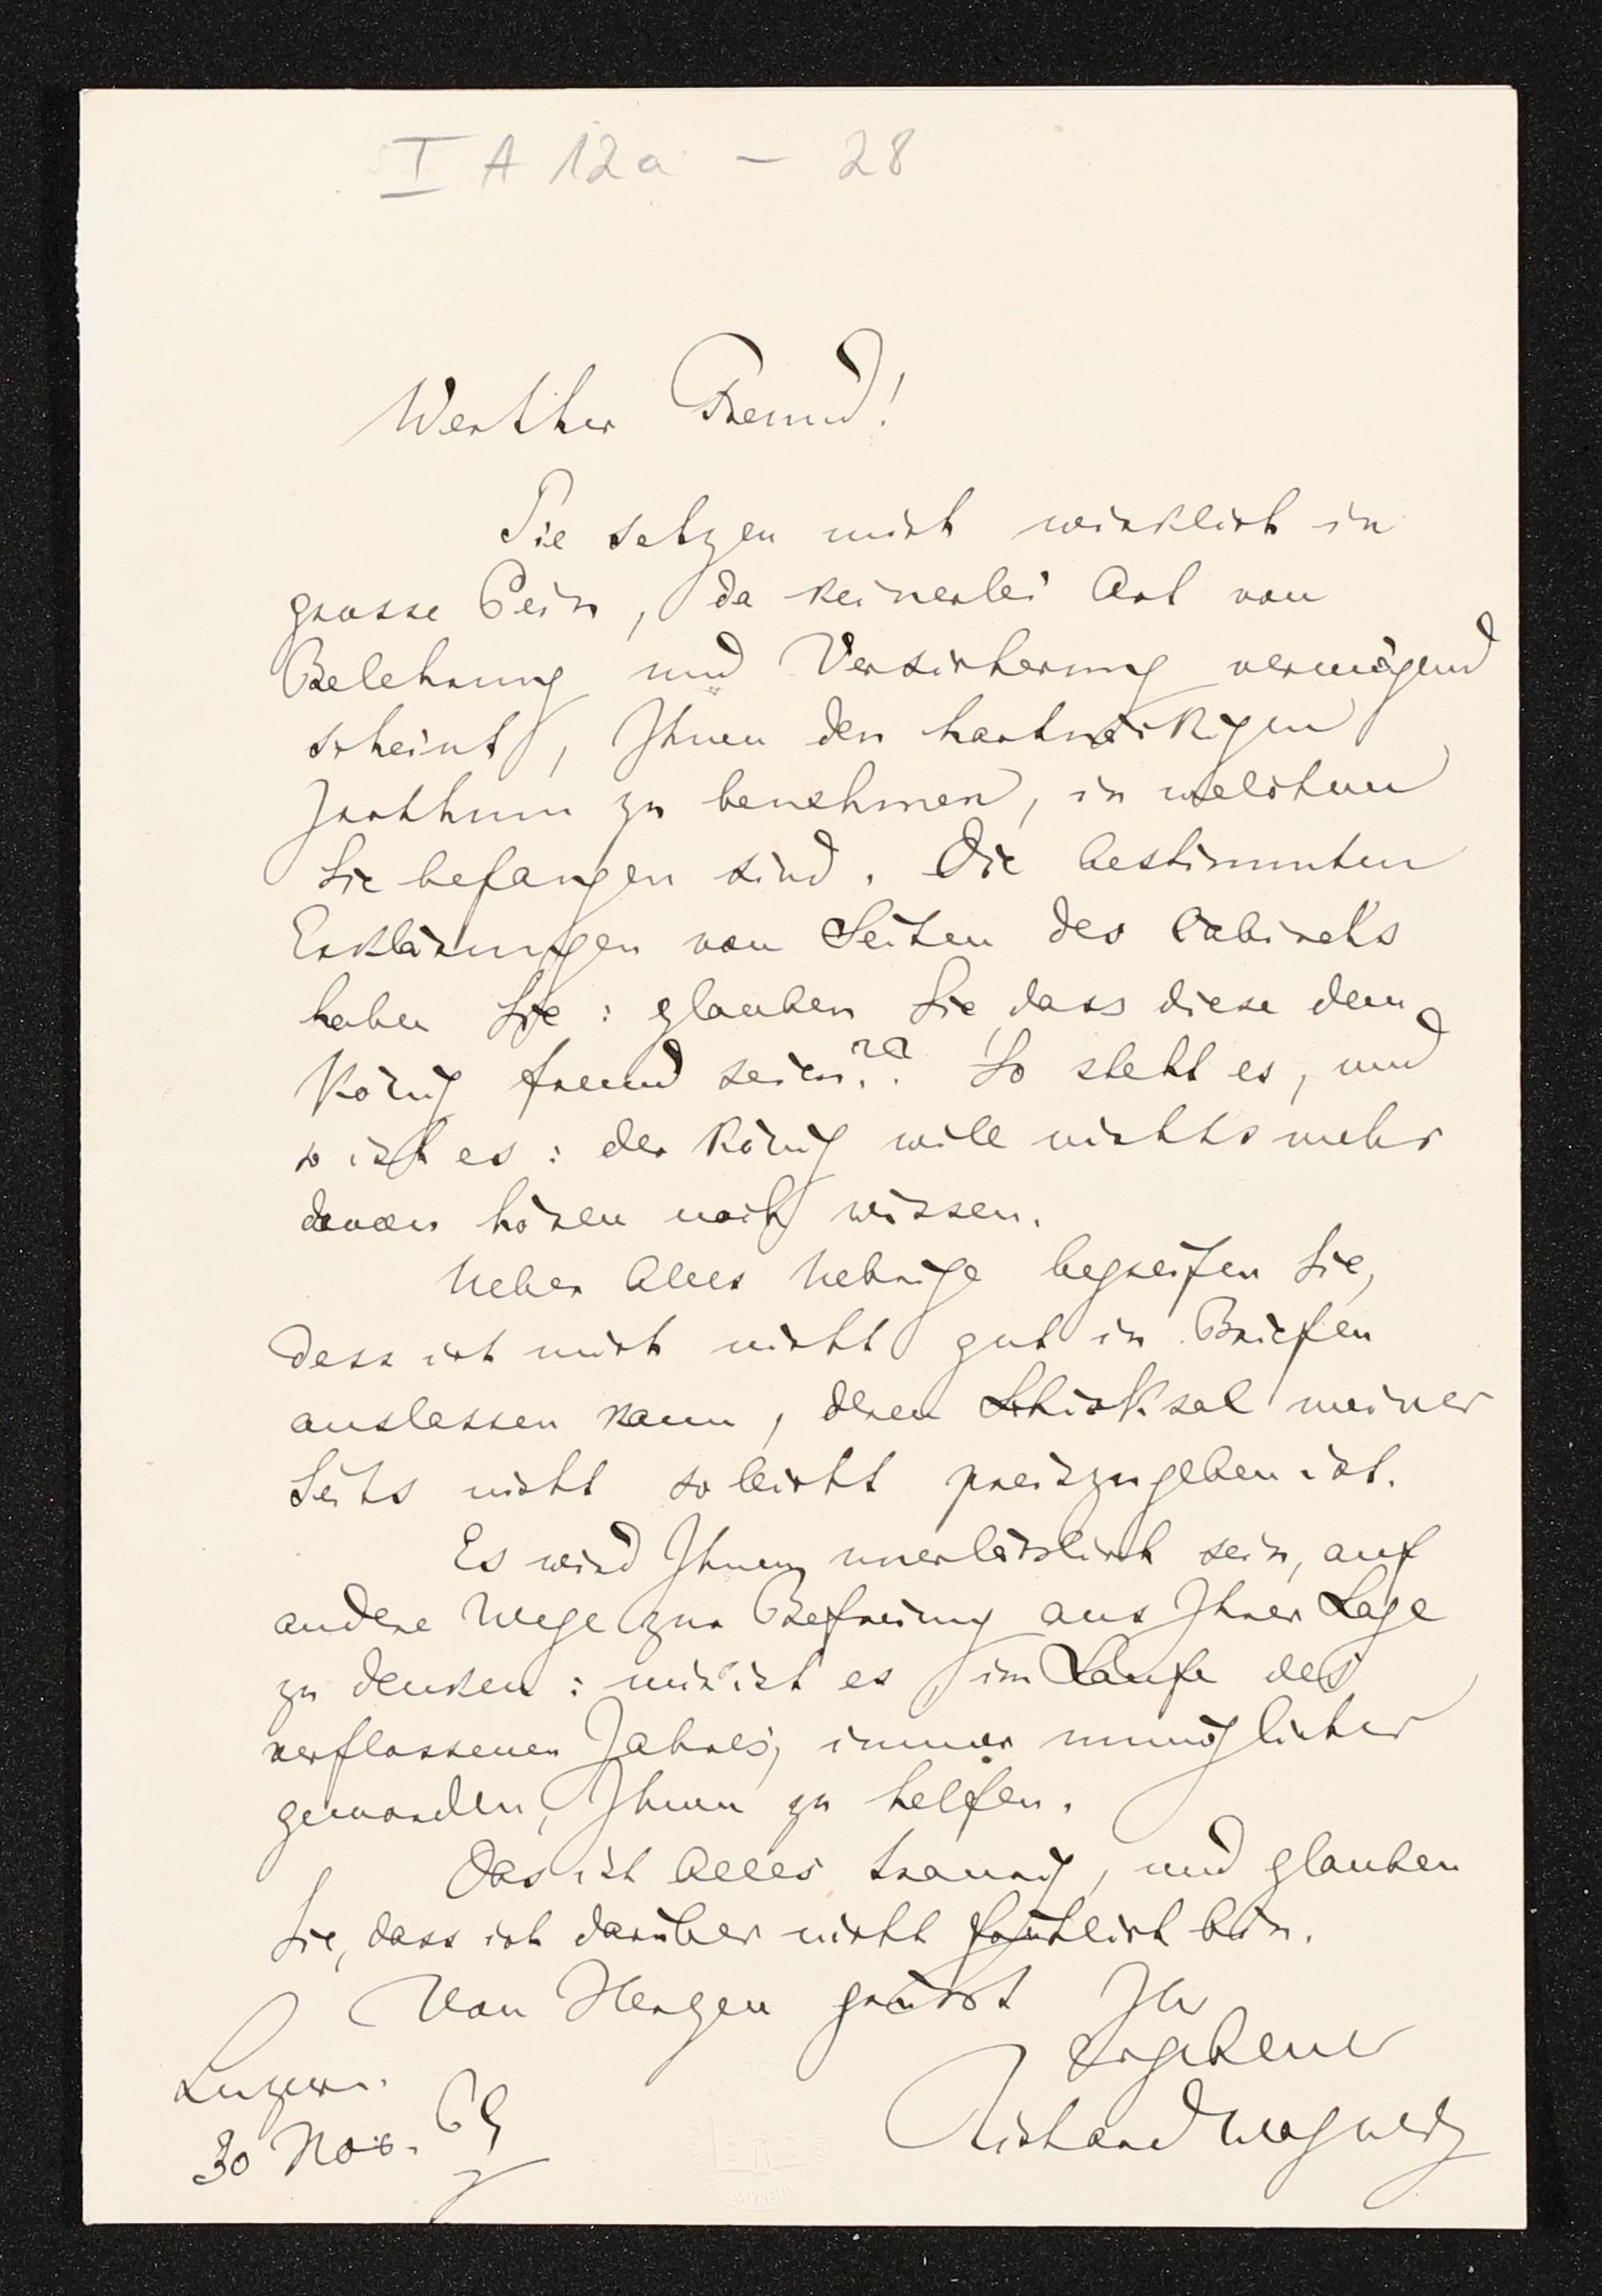 I A 12a - 28
Werther Freund!
Sie setzen mich wirklich in
grosse Pein, da keinerlei Art von
Belehrung und Versicherung vermögend
scheint, Ihnen den hartnäckigen
Irrthum zu benehmen, in welchem
Sie befangen sind. Die bestimmten
Erklärungen von Seiten des Cabinets
haben Sie: glauben Sie, dass diese dem
König fremd seien?? So steht es, und
so ist es: der König will nichts mehr
davon hören noch wissen.
Ueber Alles Uebrige begreifen Sie,
dass ich mich nicht gut in Briefen
auslassen kann, deren Schicksal meiner
Seits nicht so leicht preiszugeben ist.
Es wird Ihnen unerlässlich sein, auf
andere Wege zur Befreiung aus Ihrer Lage
zu denken: mir ist es, im Laufe des
verflossenen Jahres, immer unmöglicher
geworden, Ihnen zu helfen.
Das ist Alles traurig, und glauben
Sie, dass ich darüber nicht fröhlich bin.
Von Herzen grüsst Ihr
ergebener
Luzern.
30 Nov. 69
Richard Wagner